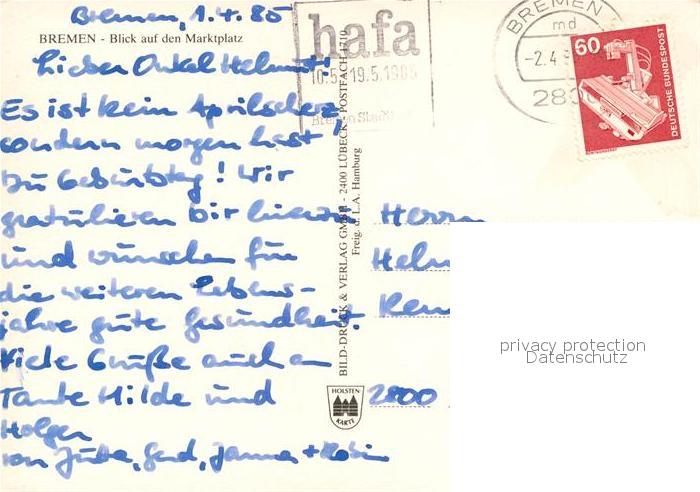 Bremen, 1.4.85
BREMEN - Blick auf den Marktplatz
Lieber Onkel Helmut!
Es ist kein Aprilscherz,
sondern morgen hast
Du Geburtstag! Wir
gratulieren Dir hierzu
und wünschen für
die weiteren Lebens-
jahre gute Gesundheit.
Viele Grüße auch an
Tante Hilde und
Holger
von Jutta, Gerd, Janna + Robin
hafa
10.5 19.5.1985
Bremen Stadth
BREMEN
md
-2.4
28
60
DEUTSCHE BUNDESPOST
BILD-DRUCK & VERLAG GMBH - 2400 LÜBECK - POSTFACH 1710
Freig. d. L.A. Hamburg
Herrn
Helm
2800
HOLSTEN
KARTE
privacy protection
Datenschutz